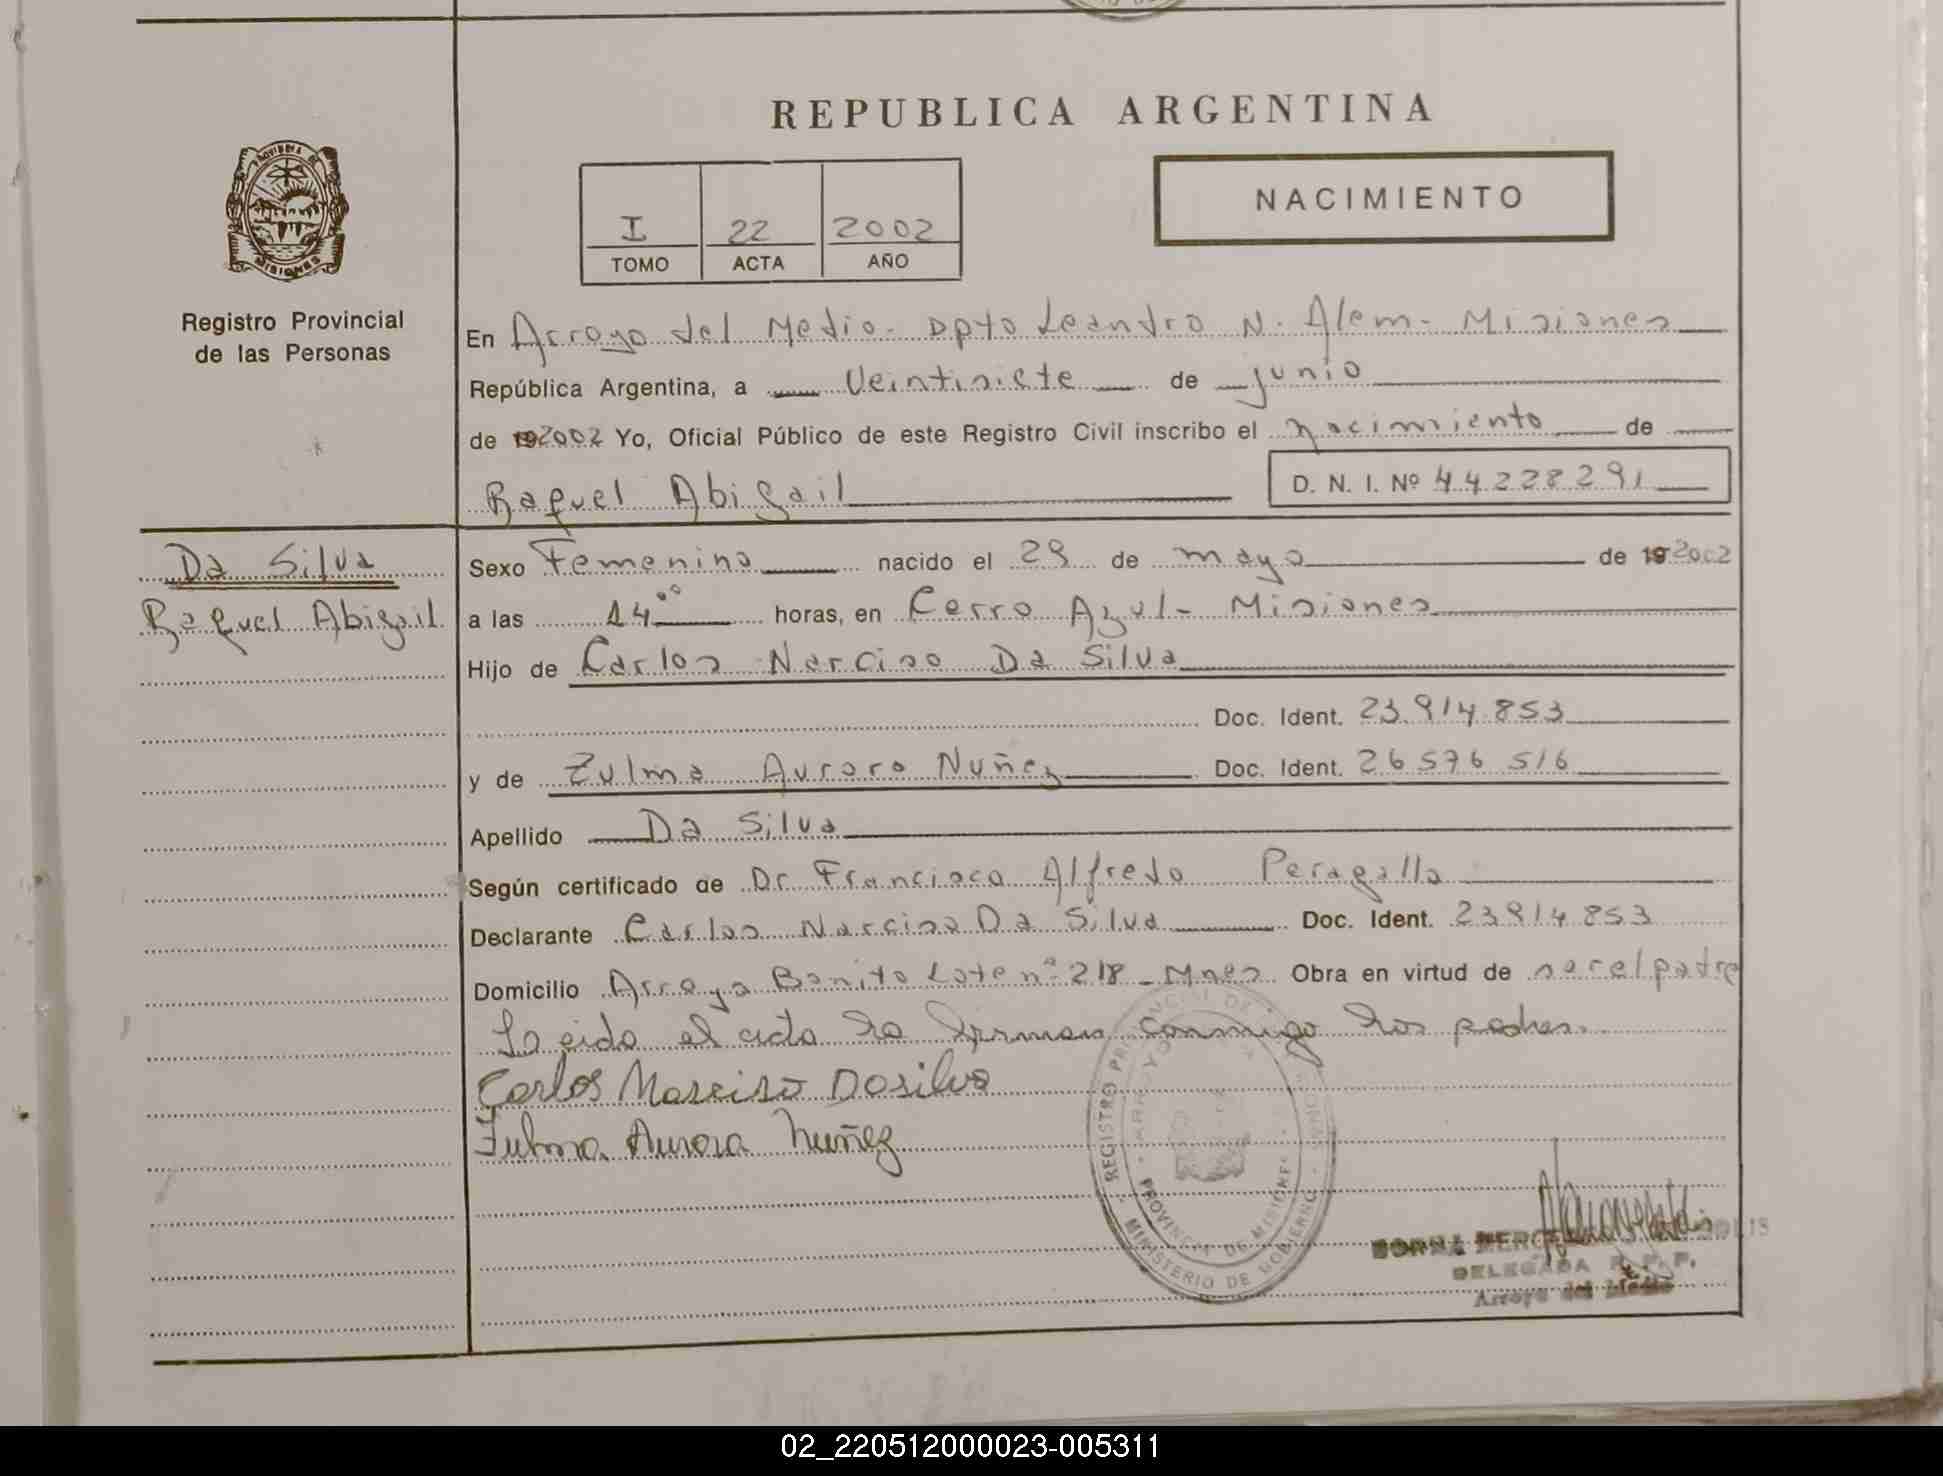 REPUBLICA ARGENTINA
PROVINCIA DE
MISIONES
I 22 2002
TOMO ACTA AÑO
NACIMIENTO
Registro Provincial
de las Personas
En Arroyo del Medio - Dpto Leandro N. Alem - Misiones
República Argentina, a Veintisiete de junio
de 192002 Yo, Oficial Público de este Registro Civil inscribo el nacimiento de
Raquel Abigail D. N. I. Nº 44228291
Da Silva
Raquel Abigail
Sexo Femenino nacido el 29 de mayo de 192002
a las 14°° horas, en Cerro Azul - Misiones
Hijo de Carlos Narciso Da Silva
Doc. Ident. 23.914.853
y de Zulma Aurora Nuñez Doc. Ident. 26576516
Apellido Da Silva
Según certificado de Dr. Francisco Alfredo Peragallo
Declarante Carlos Narciso Da Silva Doc. Ident. 23914853
Domicilio Arroyo Bonito Lote nº 218 - Mnes Obra en virtud de ser el padre
Leida el acta la firman conmigo los padres.
Carlos Narciso Dasilva
Zulma Aurora Nuñez
REGISTRO PROVINCIAL DE
MINISTERIO DE GOBIERNO
PROVINCIA DE MISIONES
NORMA
DELEGADA R. P. P.
Arroyo del Medio
02_220512000023-005311